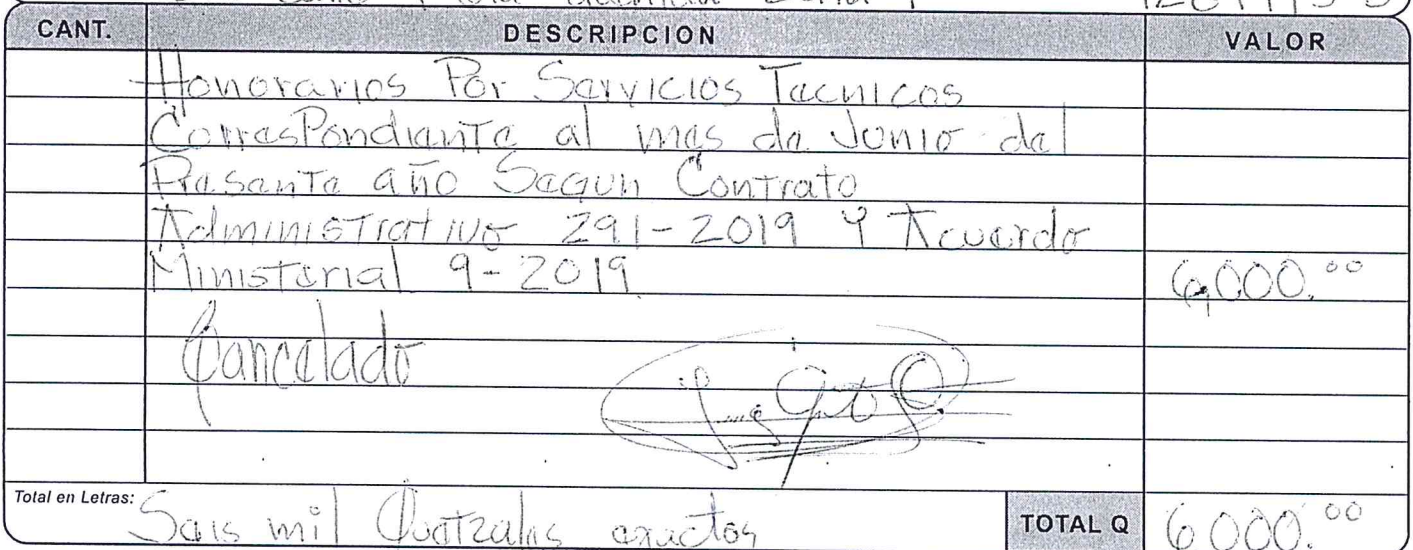 CANT. DESCRIPCION VALOR
Honorarios Por Servicios Tecnicos
CorresPondiente al mes de Junio del
Presente año Segun Contrato
Administrativo 291-2019 Y Acuerdo
Ministerial 9-2019 6,000.00
Cancelado
Total en Letras: Seis mil Quetzales exactos TOTAL Q 6000.00